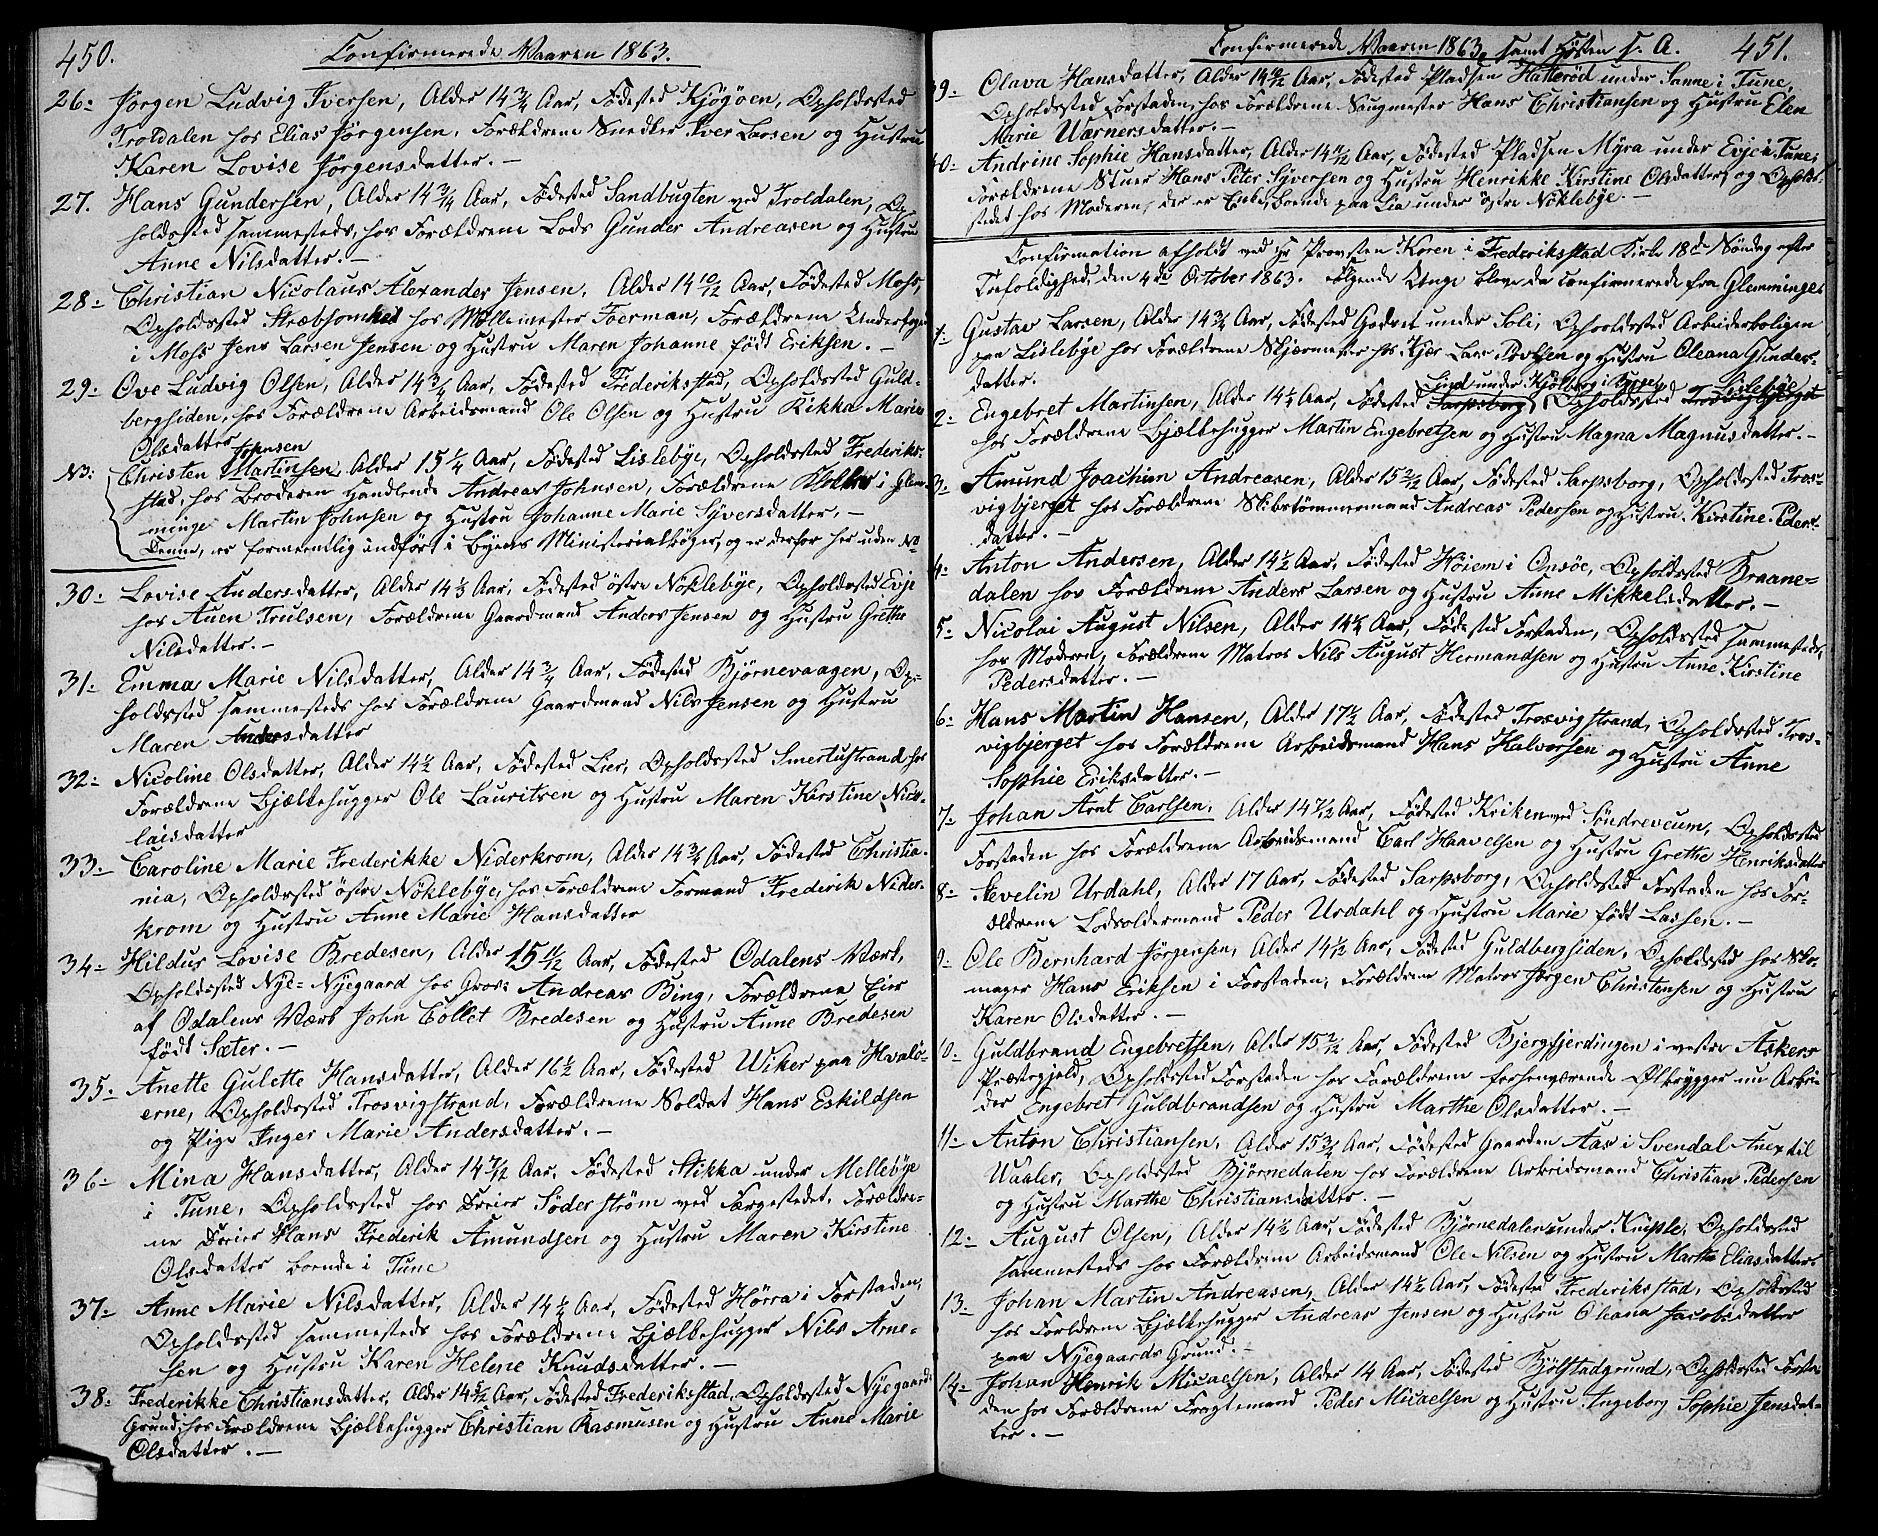 450.
Confirmerede Vaaren 1863.
26. Jørgen Ludvig Iversen, Alder 14 3/4 Aar, Fødested Kjøgøen, Opholdssted
Troldalen hos Elias Jørgensen. Forældrene Snedker Iver Larsen og Hustru
Karen Lovise Jørgensdatter. –
27. Hans Gundersen, Alder 14 3/4 Aar, Fødested Sandbugten ved Troldalen, Op-
holdssted sammesteds, hos Forældrene Lods Gunder Andreasen og Hustru
Anne Nilsdatter. –
28. Christian Nicolaus Alexander Jensen, Alder 14 10/12 Aar, Fødested Moss,
Opholdssted Stræbsomhed hos Møllemester Foerman, Forældrene Underfoged
i Moss Jens Larsen Jensen og Hustru Maren Johanne født Eriksen. –
29. Ove Ludvig Olsen, Alder 14 3/4 Aar, Fødested Frederiksstad, Opholdssted Guld-
bergsiden, hos Forældrene Arbeidsmand Ole Olsen og Hustru Kikka Marie
Olsdatter
Johnsen
NB: Christen Martinsen, Alder 15 1/4 Aar, Fødested Lislebye, Opholdssted Frederiks-
stad, hos Broderen Handlende Andreas Johnsen, Forældrene i Glem-
minge Martin Johnsen og Hustru Johanne Marie Syversdatter. –
Denne, er formeentlig indført i Byens Ministerialbøger, og er derfor her uden No
30. Lovise Andersdatter, Alder 14 1/2 Aar, Fødested østre Nøklebye, Opholdssted Evje
hos Auen Trulsen, Forældrene Gaardmand Anders Jensen og Hustru Grethe
Nilsdatter. –
31. Emma Marie Nilsdatter, Alder 14 3/4 Aar, Fødested Bjørnevaagen, Op-
holdssted sammesteds hos Forældrene Gaardmand Nils Jensen og Hustru
Maren Andersdatter
32. Nicoline Olsdatter, Alder 14 1/2 Aar, Fødested Lier, Opholdssted Smertustrand hos
Forældrene Bjælkehugger Ole Lauritzen og Hustru Maren Kirstine Nico-
laisdatter
33. Caroline Marie Frederikke Niderkrom, Alder 14 3/4 Aar, Fødested Christia-
nia, Opholdssted østre Nøklebye, hos Forældrene Formand Frederik Nider-
krom og Hustru Anne Marie Hansdatter
34. Hildur Lovise Bredesen, Alder 15 11/12 Aar, Fødested Odalens Værk,
Opholdssted Nye-Nyegaard hos Gros: Andreas Bing, Forældrene Eier
af Odalens Værk John Collet Bredesen og Hustru Anne Bredesen
født Sæter. –
35. Anette Gulette Hansdatter, Alder 16 1/2 Aar, Fødested Wiker paa Hvalø-
erne, Opholdssted Trosvigstrand, Forældrene Soldat Hans Eskildsen
og Pige Inger Marie Andersdatter. –
36. Mina Hansdatter, Alder 14 7/12 Aar, Fødested Stikka under Mellebye
i Tune, Opholdssted hos Dreier Söderstrøm ved Færgestedet. Forældre-
ne Dreier Hans Frederik Amundsen og Hustru Maren Kirstine
Olsdatter boende i Tune
37. Anne Marie Nilsdatter, Alder 14 1/2 Aar, Fødested Hørra i Forstaden,
Opholdssted sammesteds hos Forældrene Bjælkehugger Nils Arne-
sen og Hustru Karen Helene Knudsdatter. –
38. Frederikke Christiansdatter, Alder 14 5/12 Aar, Fødested Frederiksstad, Opholdssted Nyegaards
Grund, hos Forældrene Bjælkehugger Christian Rasmusen og Hustru Anne Marie
Olsdatter. –
Confirmerede Vaaren 1863, samt Høsten s. A. 451.
39. Olava Hansdatter, Alder 14 Aar, Fødested Pladsen Hatterød under Sanne i Tune,
Opholdssted Forstaden, hos Forældrene Saugmester Hans Christiansen og Hustru Elen
Marie Wærnersdatter. –
40. Andrine Sophie Hansdatter, Alder 14 11/12 Aar, Fødested Pladsen Myra under Evje i Tune,
Forældrene Stuer Hans Peter Syversen og Hustru Henrikke Kirstine Olsdatter, og Opholds-
stedet hos Moderen, der er Enke, boende paa Lia under østre Nøklebye. –
Confirmation afholdt ved Hr Provsten Koren i Frederiksstad Kirke 18de Søndag efter
Trefoldighed, den 4de October 1863. Følgende Unge bleve da confirmerede fra Glemminge:
1. Gustav Larsen, Alder 14 3/4 Aar, Fødested Godset under Soli, Opholdssted Arbeiderboligen
paa Lislebye hos Forældrene Lars og Hustru Oleana Gunders-
datter.
Lund under Kjølberg i Lislebye
2. Engebret Martinsen, Alder 14 1/2 Aar, Fødested Sarpsborg, Opholdssted Trosvigbjerget
hos Forældrene Bjælkehugger Martin Engebretsen og Hustru Magna Magnusdatter. –
3. Amund Joachim Andreasen, Alder 15 2/12 Aar, Fødested Sarpsborg, Opholdssted Tros-
vigbjerget hos Forældrene Skibstømmermand Andreas Pedersen og Hustru Kirstine Peders-
datter. –
4. Anton Andersen, Alder 14 1/2 Aar, Fødested Høiem i Onsøe, Opholdssted Kraane-
dalen hos Forældrene Anders Larsen og Hustru Anne Mikkelsdatter. –
5. Nicolai August Nilsen, Alder 14 3/4 Aar, Fødested Forstaden, Opholdssted sammesteds
hos Moderen, Forældrene Matros Nils August Hermandsen og Hustru Anne Kirstine
Pedersdatter. –
6. Hans Martin Hansen, Alder 17 1/2 Aar, Fødested Trosvigstrand, Opholdssted Tros-
vigbjerget hos Forældrene Arbeidsmand Hans Halvorsen og Hustru Anne
Sophie Eriksdatter. –
7. Johan Arnt Carlsen, Alder 14 7/12 Aar, Fødested Kriken ved Søndreveum, Opholdssted
Forstaden hos Forældrene Arbeidsmand Carl Haavelsen og Hustru Grethe Henriksdatter
8. Sevelin Urdahl, Alder 17 Aar, Fødested Sarpsborg, Opholdssted Forstaden hos For-
ældrene Lodsoldermand Peder Urdahl og Hustru Marie født Lassen. –
9. Ole Bernhard Jørgensen, Alder 14 1/2 Aar, Fødested Guldbergsiden, Opholdssted hos Sko-
mager Hans Eriksen i Forstaden, Forældrene Matros Jørgen Christensen og Hustru
Karen Olsdatter. –
10. Guldbrand Engebretsen, Alder 15 2/12 Aar, Fødested Bjergfjerdingen i vestre Askers
Præstegjeld, Opholdssted Forstaden hos Forældrene forhenværende Ølbrygger nu Arbei-
der Engebret Guldbrandsen og Hustru Marthe Olsdatter. –
11. Anton Christiansen, Alder 15 3/4 Aar, Fødested Gaarden Aas i Svendal Anex til
Waaler, Opholdssted Bjørnedalen hos Forældrene Arbeidsmand Christian Pedersen
og Hustru Marthe Christiansdatter. –
12. August Olsen, Alder 14 1/2 Aar, Fødested Bjørnedalen under Kniple, Opholdssted
sammesteds hos Forældrene Arbeidsmand Ole Nilsen og Hustru Marthe Eliasdatter.
13. Johan Martin Andreasen, Alder 14 1/2 Aar, Fødested Frederiksstad, Opholdssted
hos Forældrene Bjælkehugger Andreas Jensen og Hustru Oleana Jacobsdatter
paa Nyegaards Grund. –
14. Johan Henrik Micaelsen, Alder 14 Aar, Fødested Bjølstadgrund, Opholdssted Forsta-
den hos Forældrene Fragtemand Peder Micaelsen og Hustru Ingeborg Sophie Jensdat-
ter. –